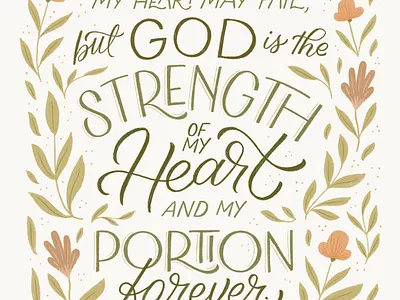 MY HEART MAY FAIL,
but GOD is the
STRENGTH
OF
MY
Heart
AND MY
PORTION
forever